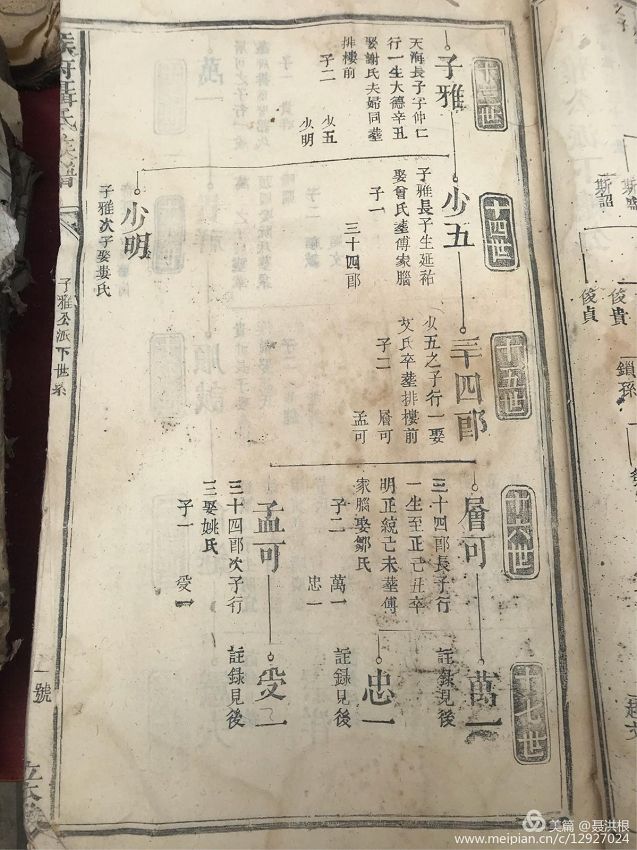 十三世
子雅
天海長子字仲仁
行一生大德辛丑
娶謝氏夫婦同塟
排樓前
子二
少五
少明
十四世
少五
子雅長子生延祐
娶曾氏塟傅家腦
子一
三十四郎
少明
子雅次子娶婁氏
十五世
三十四郎
少五之子行一娶
艾氏卒塟排樓前
子二
層可
孟可
十六世
層可
三十四郎長子行
一生至正己丑卒
明正統己未塟傅
家腦娶鄒氏
子二
萬一
忠一
孟可
三十四郎次子行
三娶姚氏
子一
受一
十七世
萬一
註錄見後
忠一
註錄見後
受一
註錄見後
聶氏族譜
子雅公派下世系
一號
俊貴
俊貞
鎖孫
斯韶
美篇 @聂洪根
www.meipian.cn/c/12927024